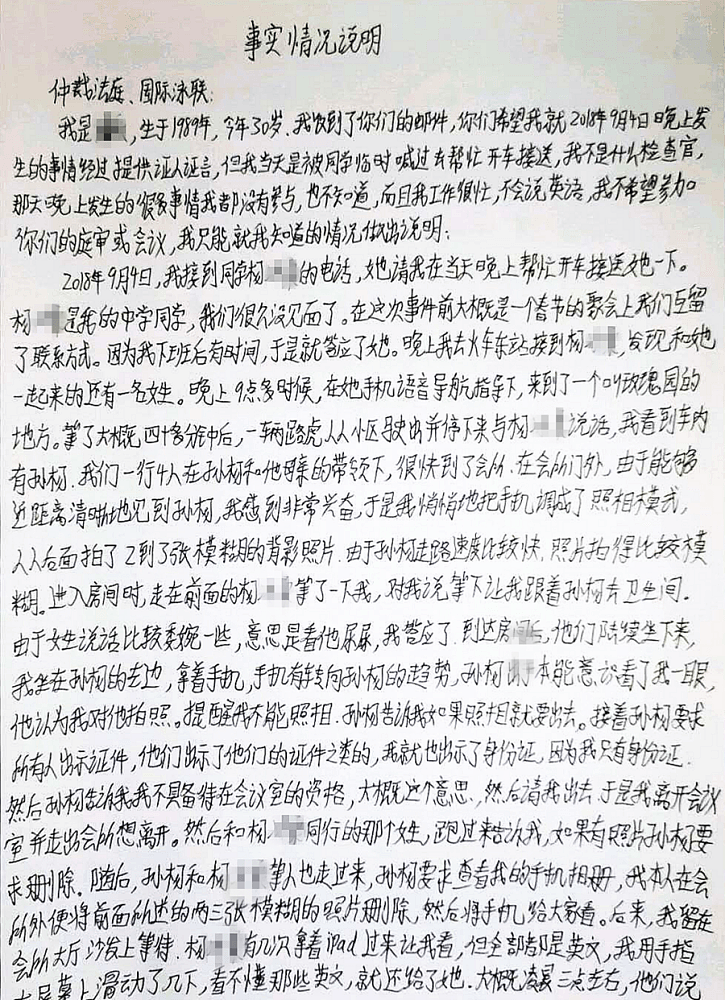 事实情况说明
仲裁法庭、国际泳联:
我是，生于1989年，今年30岁．我收到了你们的邮件，你们希望我就2018年9月4日晚上发
生的事情经过提供证人证言，但我当天是被同学临时喊过去帮忙开车接送，我不是什么检查官，
那天晚上发生的很多事情我都没有参与，也不知道，而且我工作很忙，不会说英语，我不希望参加
你们的庭审或会议，我只能就我知道的情况做出说明：
2018年9月4日，我接到同学杨的电话，她请我在当天晚上帮忙开车接送她一下。
杨是我的中学同学，我们很久没见面了。在这次事件前大概是一个春节的聚会上我们互留
了联系方式。因为我下班后有时间，于是就答应了她。晚上我去火车东站接到杨，发现和她
一起来的还有一名女生。晚上9点多时候，在她手机语音导航指导下，来到了一个叫玫瑰园的
地方。等了大概四十多分钟后，一辆路虎从小区驶出并停下来与杨说话，我看到车内
有孙杨．我们一行4人在孙杨和他母亲的带领下，很快到了会所．在会所门外，由于能够
近距离清晰地见到孙杨，我感到非常兴奋，于是我悄悄地把手机调成了照相模式，
从后面拍了2到了张模糊的背影照片．由于孙杨走路速度比较快，照片拍得比较模
糊。进入房间时，走在前面的杨等了一下我，对我说等下让我跟着孙杨去卫生间．
由于女生说话比较委婉一些，意思是看他尿尿，我答应了．到达房间后，他们陆续坐下来，
我坐在孙杨的左边，拿着手机，手机有转向孙杨的趋势，孙杨本能意识看了我一眼，
他认为我对他拍照。提醒我不能照相．孙杨告诉我如果照相就要出去。接着孙杨要求
所有人出示证件，他们出示了他们的证件之类的，我就也出示了身份证，因为我只有身份证．
然后孙杨告诉我我不具备待在会议室的资格，大概这个意思，然后请我出去．于是我离开会议
室并走出会所想离开。然后和杨同行的那个女生，跑过来告诉我，如果有照片孙杨要
求删除．随后，孙杨和杨等人也走过来，孙杨要求查看我的手机相册，我本人在会
所外便将前面所述的两三张模糊的照片删除，然后将手机给大家看。后来，我留在
会所大厅沙发上等待．杨有几次拿着ipad过来让我看，但全部都是英文，我用手指
在屏幕上滑动了几下，看不懂那些英文，就还给了她．大概凌晨三点左右，他们说